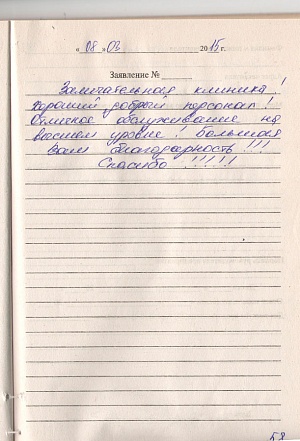 « 08 » 03 2015 г.
Заявление № ______
Замечательная клиника!
Хороший добрый персонал!
Отличное обслуживание на
высшем уровне! Большая
Вам благодарность!!!
Спасибо !!!!!
58